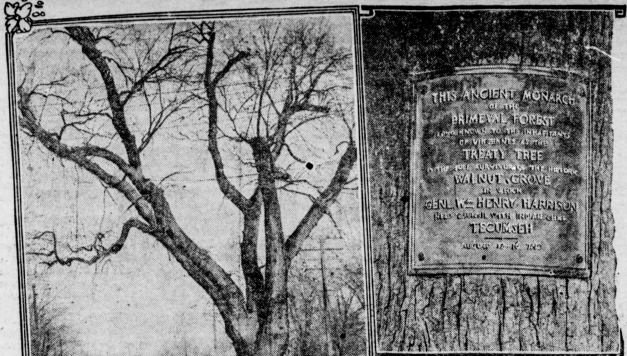 THIS ANCIENT MONARCH
OF THE
PRIMEVAL FOREST
KNOWN TO THE INHABITANTS
OF VINCENNES AS THE
TREATY TREE
IS THE SOLE SURVIVOR OF THE HISTORIC
WALNUT GROVE
IN WHICH
GENL. WM HENRY HARRISON
HELD COUNCIL WITH INDIAN CHIEF
TECUMSEH
AUGUST